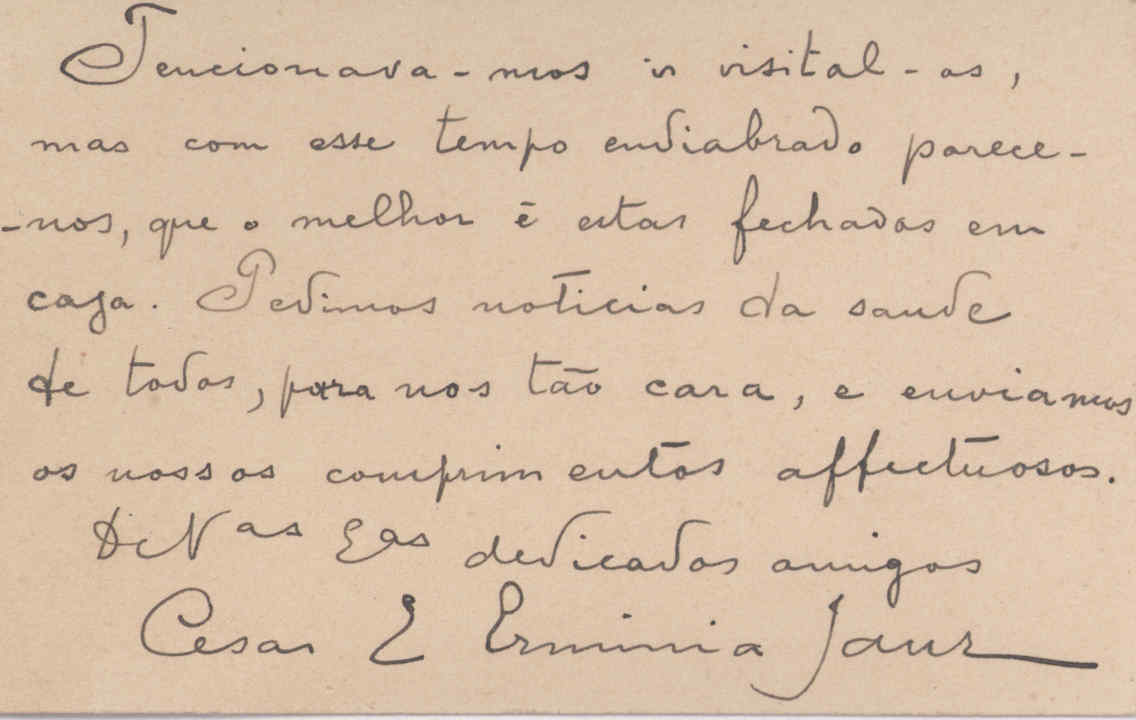 Tencionava-mos ir visital-as,
mas com esse tempo endiabrado parece-
-nos, que o melhor é estar fechados em
casa. Pedimos noticias da saude
de todos, para nos tão cara, e enviamos
os nossos comprimentos affectuosos.
De V as Exas dedicados amigos
Cesar E Erminia